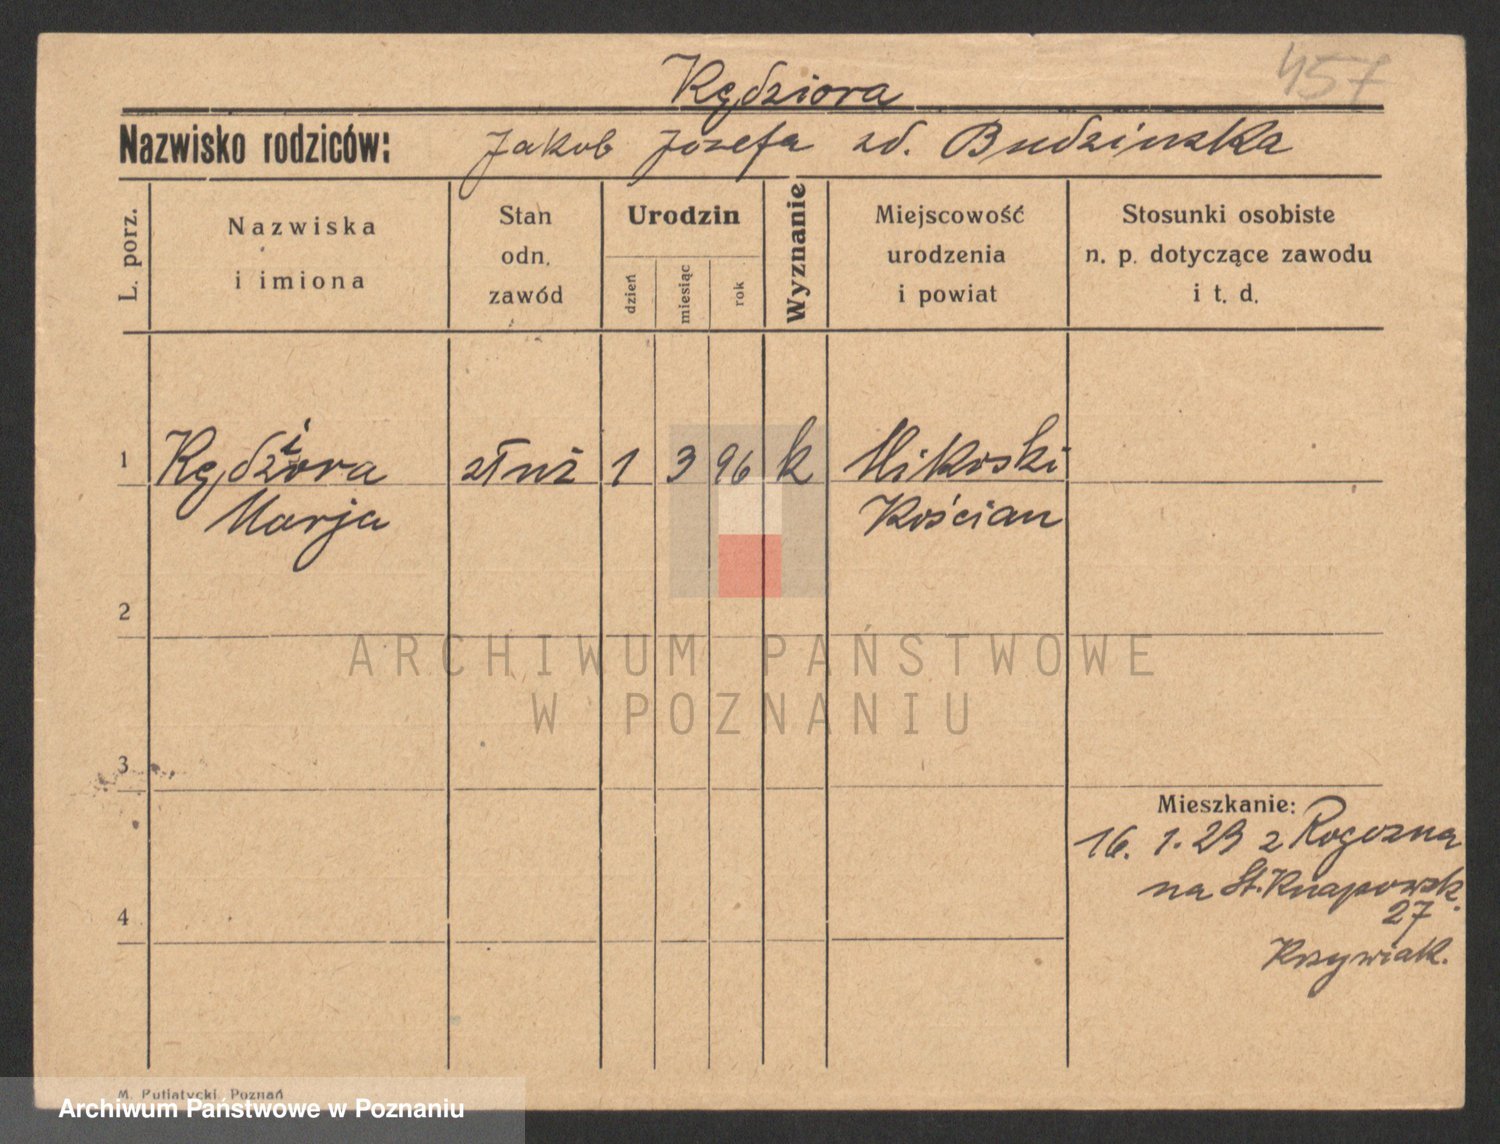 457
Kędziora
Nazwisko rodziców: Jakob Józefa zd. Budzinska
L. porz.
Nazwiska
i imiona
Stan
odn.
zawód
Urodzin
dzień
miesiąc
rok
Wyznanie
Miejscowość
urodzenia
i powiat
Stosunki osobiste
n. p. dotyczące zawodu
i t. d.
1 Kędziora służ 1 3 96 k Mikoski
Marja Kościan
2
ARCHIWUM PAŃSTWOWE
W POZNANIU
3
Mieszkanie:
16. 1. 23 z Rogozna
na St. Knapowsk.
27
4
Krzywiak.
M. Putiatycki, Poznań
Archiwum Państwowe w Poznaniu